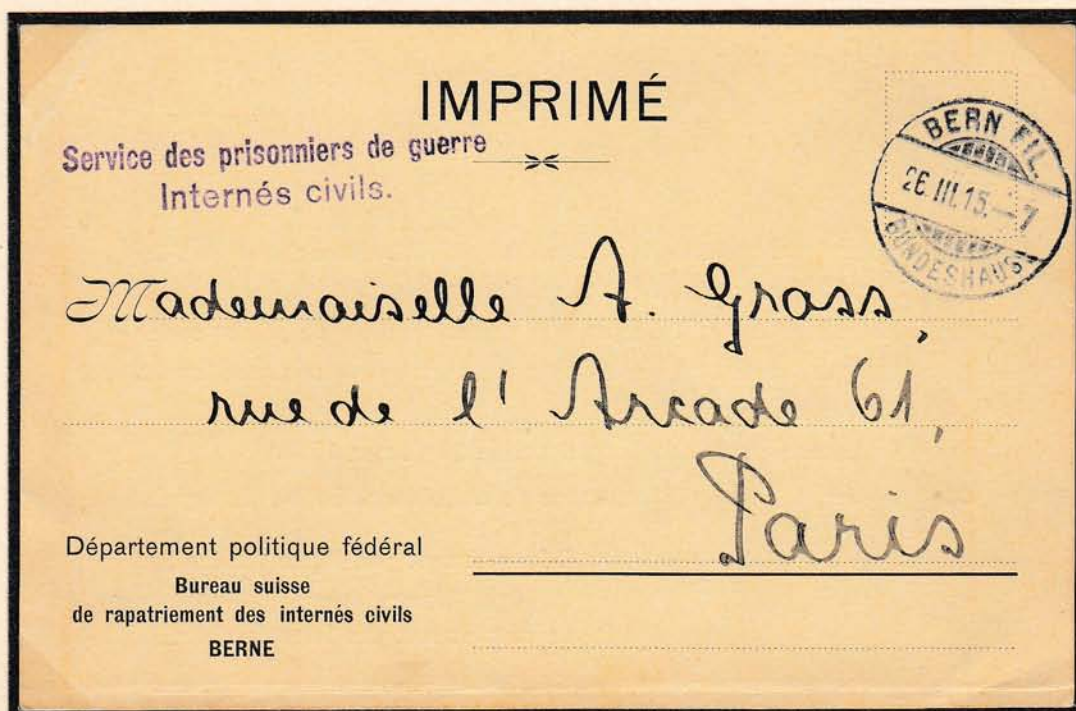 IMPRIMÉ
Service des prisonniers de guerre
Internés civils.
BERN FIL.
26.III.15.–7
BUNDESHAUS
Mademoiselle A. Grass,
rue de l' Arcade 61,
Paris
Département politique fédéral
Bureau suisse
de rapatriement des internés civils
BERNE